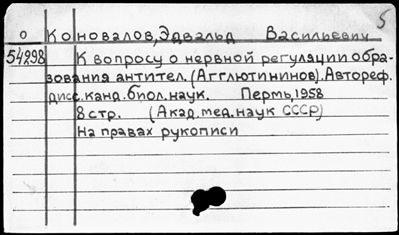 5
о Коновалов, Эдвальд Васильевич
54298 К вопросу о нервной регуляции обра-
зования антител. (Агглютининов). Автореф.
дисс. канд. биол. наук. Пермь, 1958
8 стр. (Акад. мед. наук СССР)
На правах рукописи